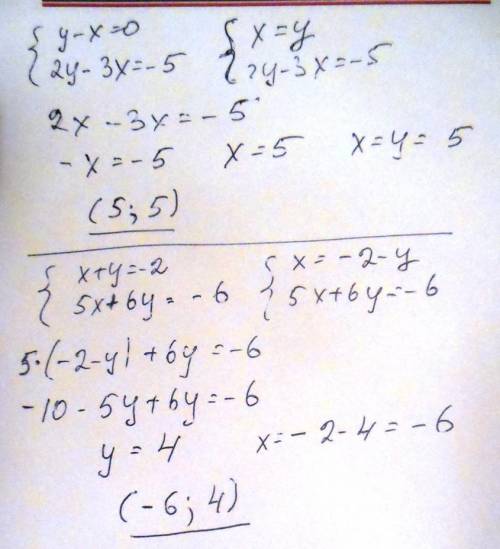 { y-x=0 { x=y
{ 2y-3x=-5 { 2y-3x=-5
2x-3x=-5
-x=-5 x=5 x=y=5
(5; 5)
{ x+y=-2 { x=-2-y
{ 5x+6y=-6 { 5x+6y=-6
5·(-2-y)+6y=-6
-10-5y+6y=-6
y=4 x=-2-4=-6
(-6; 4)